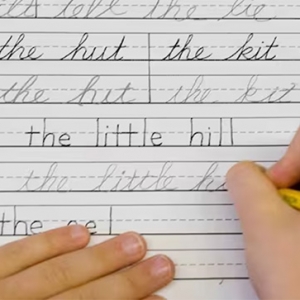 tell the lie
the hut the kit
the hut the kit
the little hill
the little h
the eel